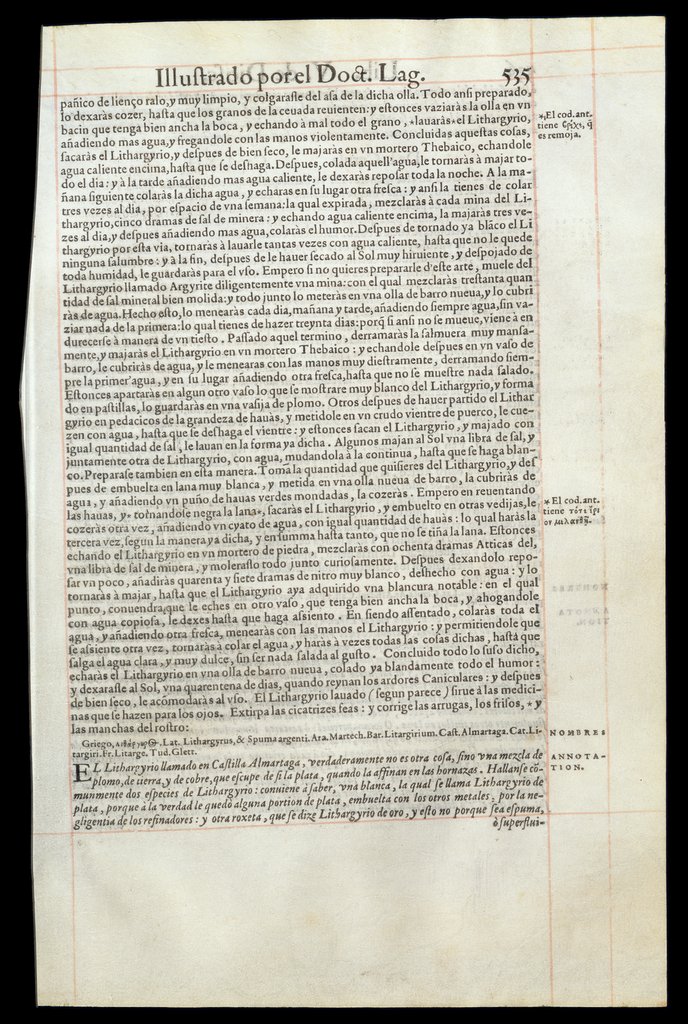 Illuſtrado por el Doct. Lag. 535
pañico de lienço ralo, y muy limpio, y colgaraſle del aſa de la dicha olla. Todo anſi preparado,
lo dexaràs cozer, haſta que los granos de la ceuada reuienten: y eſtonces vaziaràs la olla en vn
bacin que tenga bien ancha la boca, y echando à mal todo el grano, *lauaràs* el Lithargyrio,
añadiendo mas agua, y fregandole con las manos violentamente. Concluidas aqueſtas coſas,
ſacaràs el Lithargyrio, y deſpues de bien ſeco, le majaràs en vn mortero Thebaico, echandole
agua caliente encima, haſta que ſe deshaga. Deſpues, colada aquell'agua, le tornaràs à majar to-
do el dia: y à la tarde añadiendo mas agua caliente, le dexaràs repoſar toda la noche. A la ma-
ñana ſiguiente colaràs la dicha agua, y echaras en ſu lugar otra freſca: y anſi la tienes de colar
tres vezes al dia, por eſpacio de vna ſemana: la qual expirada, mezclaràs à cada mina del Li-
thargyrio, cinco dramas de ſal de minera: y echando agua caliente encima, la majaràs tres ve-
zes al dia, y deſpues añadiendo mas agua, colaràs el humor. Deſpues de tornado ya blāco el Li
thargyrio por eſta via, tornaràs à lauarle tantas vezes con agua caliente, haſta que no le quede
ninguna ſalumbre: y à la fin, deſpues de le hauer ſecado al Sol muy hiruiente, y deſpojado de
toda humidad, le guardaràs para el vſo. Empero ſi no quieres prepararle d'eſte arte, muele del
Lithargyrio llamado Argyrite diligentemente vna mina: con el qual mezclaràs treſtanta quan
tidad de ſal mineral bien molida: y todo junto lo meteràs en vna olla de barro nueua, y lo cubri
ràs de agua. Hecho eſto, lo menearàs cada dia, mañana y tarde, añadiendo ſiempre agua, ſin va-
ziar nada de la primera: lo qual tienes de hazer treynta dias: porq̃ ſi anſi no ſe mueue, viene à en
durecerſe à manera de vn tieſto. Paſſado aquel termino, derramaràs la ſalmuera muy manſa-
mente, y majaràs el Lithargyrio en vn mortero Thebaico: y echandole deſpues en vn vaſo de
barro, le cubriràs de agua, y le menearas con las manos muy dieſtramente, derramando ſiem-
pre la primer'agua, y en ſu lugar añadiendo otra freſca, haſta que no ſe mueſtre nada ſalado.
Eſtonces apartaràs en algun otro vaſo lo que ſe moſtrare muy blanco del Lithargyrio, y forma
do en paſtillas, lo guardaràs en vna vaſija de plomo. Otros deſpues de hauer partido el Lithar
gyrio en pedacicos de la grandeza de hauàs, y metidole en vn crudo vientre de puerco, le cue-
zen con agua, haſta que ſe deshaga el vientre: y eſtonces ſacan el Lithargyrio, y majado con
igual quantidad de ſal, le lauan en la forma ya dicha. Algunos majan al Sol vna libra de ſal, y
juntamente otra de Lithargyrio, con agua, mudandola à la continua, haſta que ſe haga blan-
co. Preparaſe tambien en eſta manera. Toma la quantidad que quiſieres del Lithargyrio, y deſ
pues de embuelta en lana muy blanca, y metida en vna olla nueua de barro, la cubriràs de
agua, y añadiendo vn puño de hauas verdes mondadas, la cozeràs. Empero en reuentando
las hauas, y* tornandole negra la lana*, ſacaràs el Lithargyrio, y embuelto en otras vedijas, le
cozeràs otra vez, añadiendo vn cyato de agua, con igual quantidad de hauàs: lo qual haràs la
tercera vez, ſegun la manera ya dicha, y en ſumma haſta tanto, que no ſe tiña la lana. Eſtonces
echando el Lithargyrio en vn mortero de piedra, mezclaràs con ochenta dramas Atticas del,
vna libra de ſal de minera, y moleraſlo todo junto curioſamente. Deſpues dexandolo repo-
ſar vn poco, añadiràs quarenta y ſiete dramas de nitro muy blanco, deshecho con agua: y lo
tornaràs à majar, haſta que el Lithargyrio aya adquirido vna blancura notable: en el qual
punto, conuendra, que le eches en otro vaſo, que tenga bien ancha la boca, y ahogandole
con agua copioſa, le dexes haſta que haga aſsiento. En ſiendo aſſentado, colaràs toda el
agua, y añadiendo otra freſca, menearàs con las manos el Lithargyrio: y permitiendole que
ſe aſsiente otra vez, tornaràs à colar el agua, y haràs à vezes todas las coſas dichas, haſta que
ſalga el agua clara, y muy dulce, ſin ſer nada ſalada al guſto. Concluido todo lo ſuſo dicho,
echaràs el Lithargyrio en vna olla de barro nueua, colado ya blandamente todo el humor:
y dexaraſle al Sol, vna quarentena de dias, quando reynan los ardores Caniculares: y deſpues
de bien ſeco, le acòmodaràs al vſo. El Lithargyrio lauado (ſegun parece) ſirue à las medici-
nas que ſe hazen para los ojos. Extirpa las cicatrizes feas: y corrige las arrugas, los friſos, *y
las manchas del roſtro:
*El cod. ant.
tiene ἐρίχι, q̃
es remoja.
* El cod. ant.
tiene τότε ἔρι
ον μελανθῇ.
Griego, λιθάργυρος. Lat. Lithargyrus, & Spuma argenti. Ara. Martech. Bar. Litargirium. Caſt. Almartaga. Cat. Li-
targiri. Fr. Litarge. Tud. Glett.
NOMBRES
EL Lithargyrio llamado en Caſtilla Almartaga, verdaderamente no es otra coſa, ſino vna mezcla de
plomo, de tierra, y de cobre, que eſcupe de ſi la plata, quando la affinan en las hornazas. Hallanſe cō-
munmente dos eſpecies de Lithargyrio: conuiene à ſaber, vna blanca, la qual ſe llama Lithargyrio de
plata, porque à la verdad le quedò alguna portion de plata, embuelta con los otros metales, por la ne-
gligentia de los refinadores: y otra roxeta, que ſe dize Lithargyrio de oro, y eſto no porque ſea eſpuma,
ò ſuperflui-
ANNOTA-
TION.